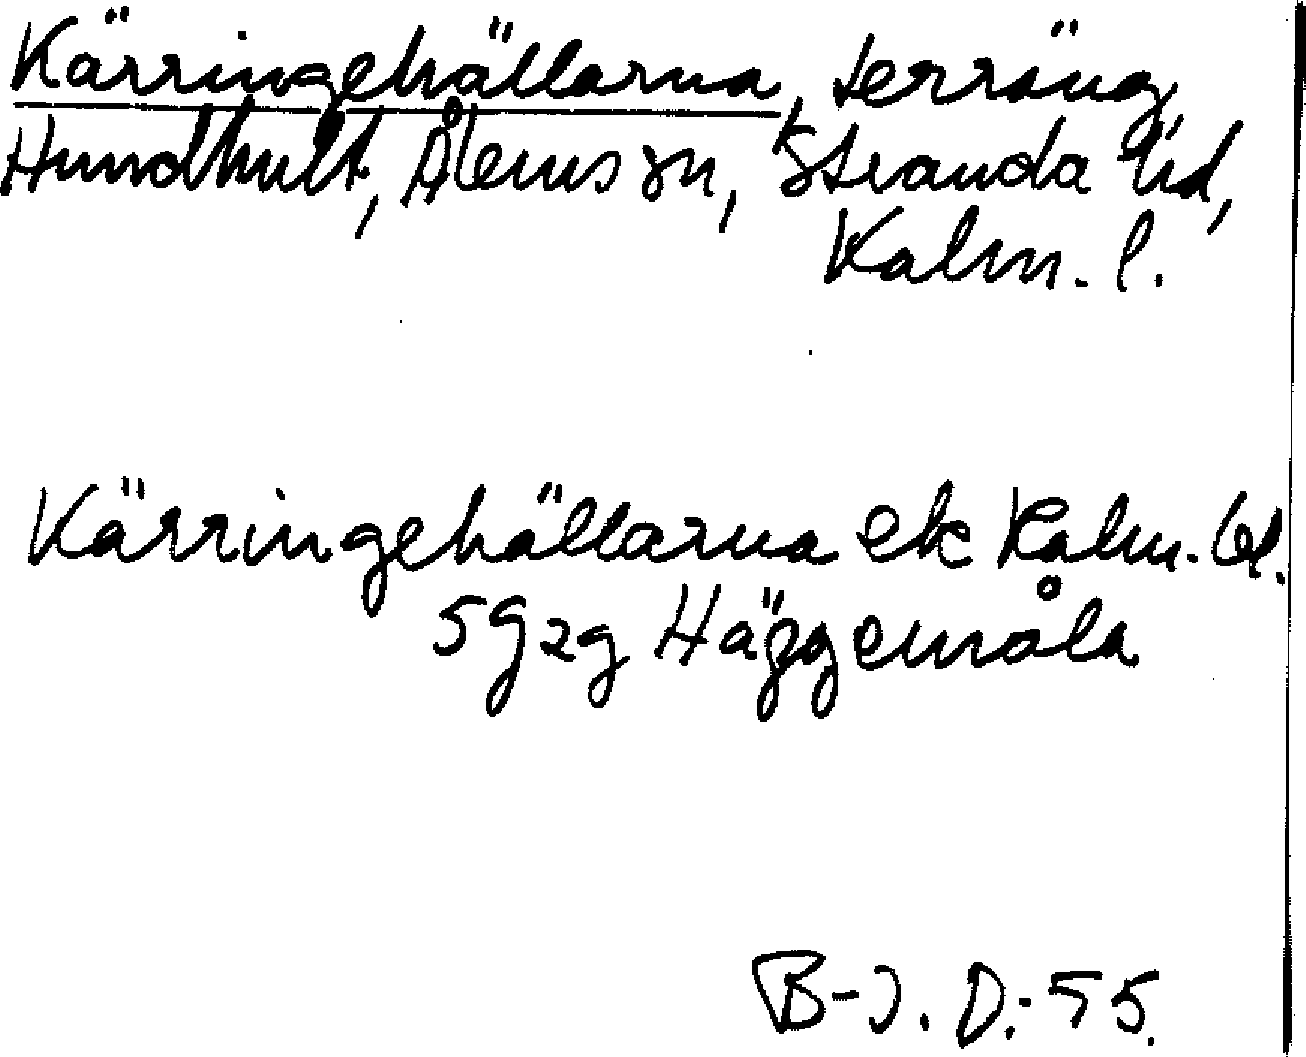 Kärringehällarna, terräng,
Hundhult, Ålems sn, Stranda hd,
Kalm. l.
Kärringehällarna ek Kalm. bl.
5G2g Häggemåla
B-J. D.-55.